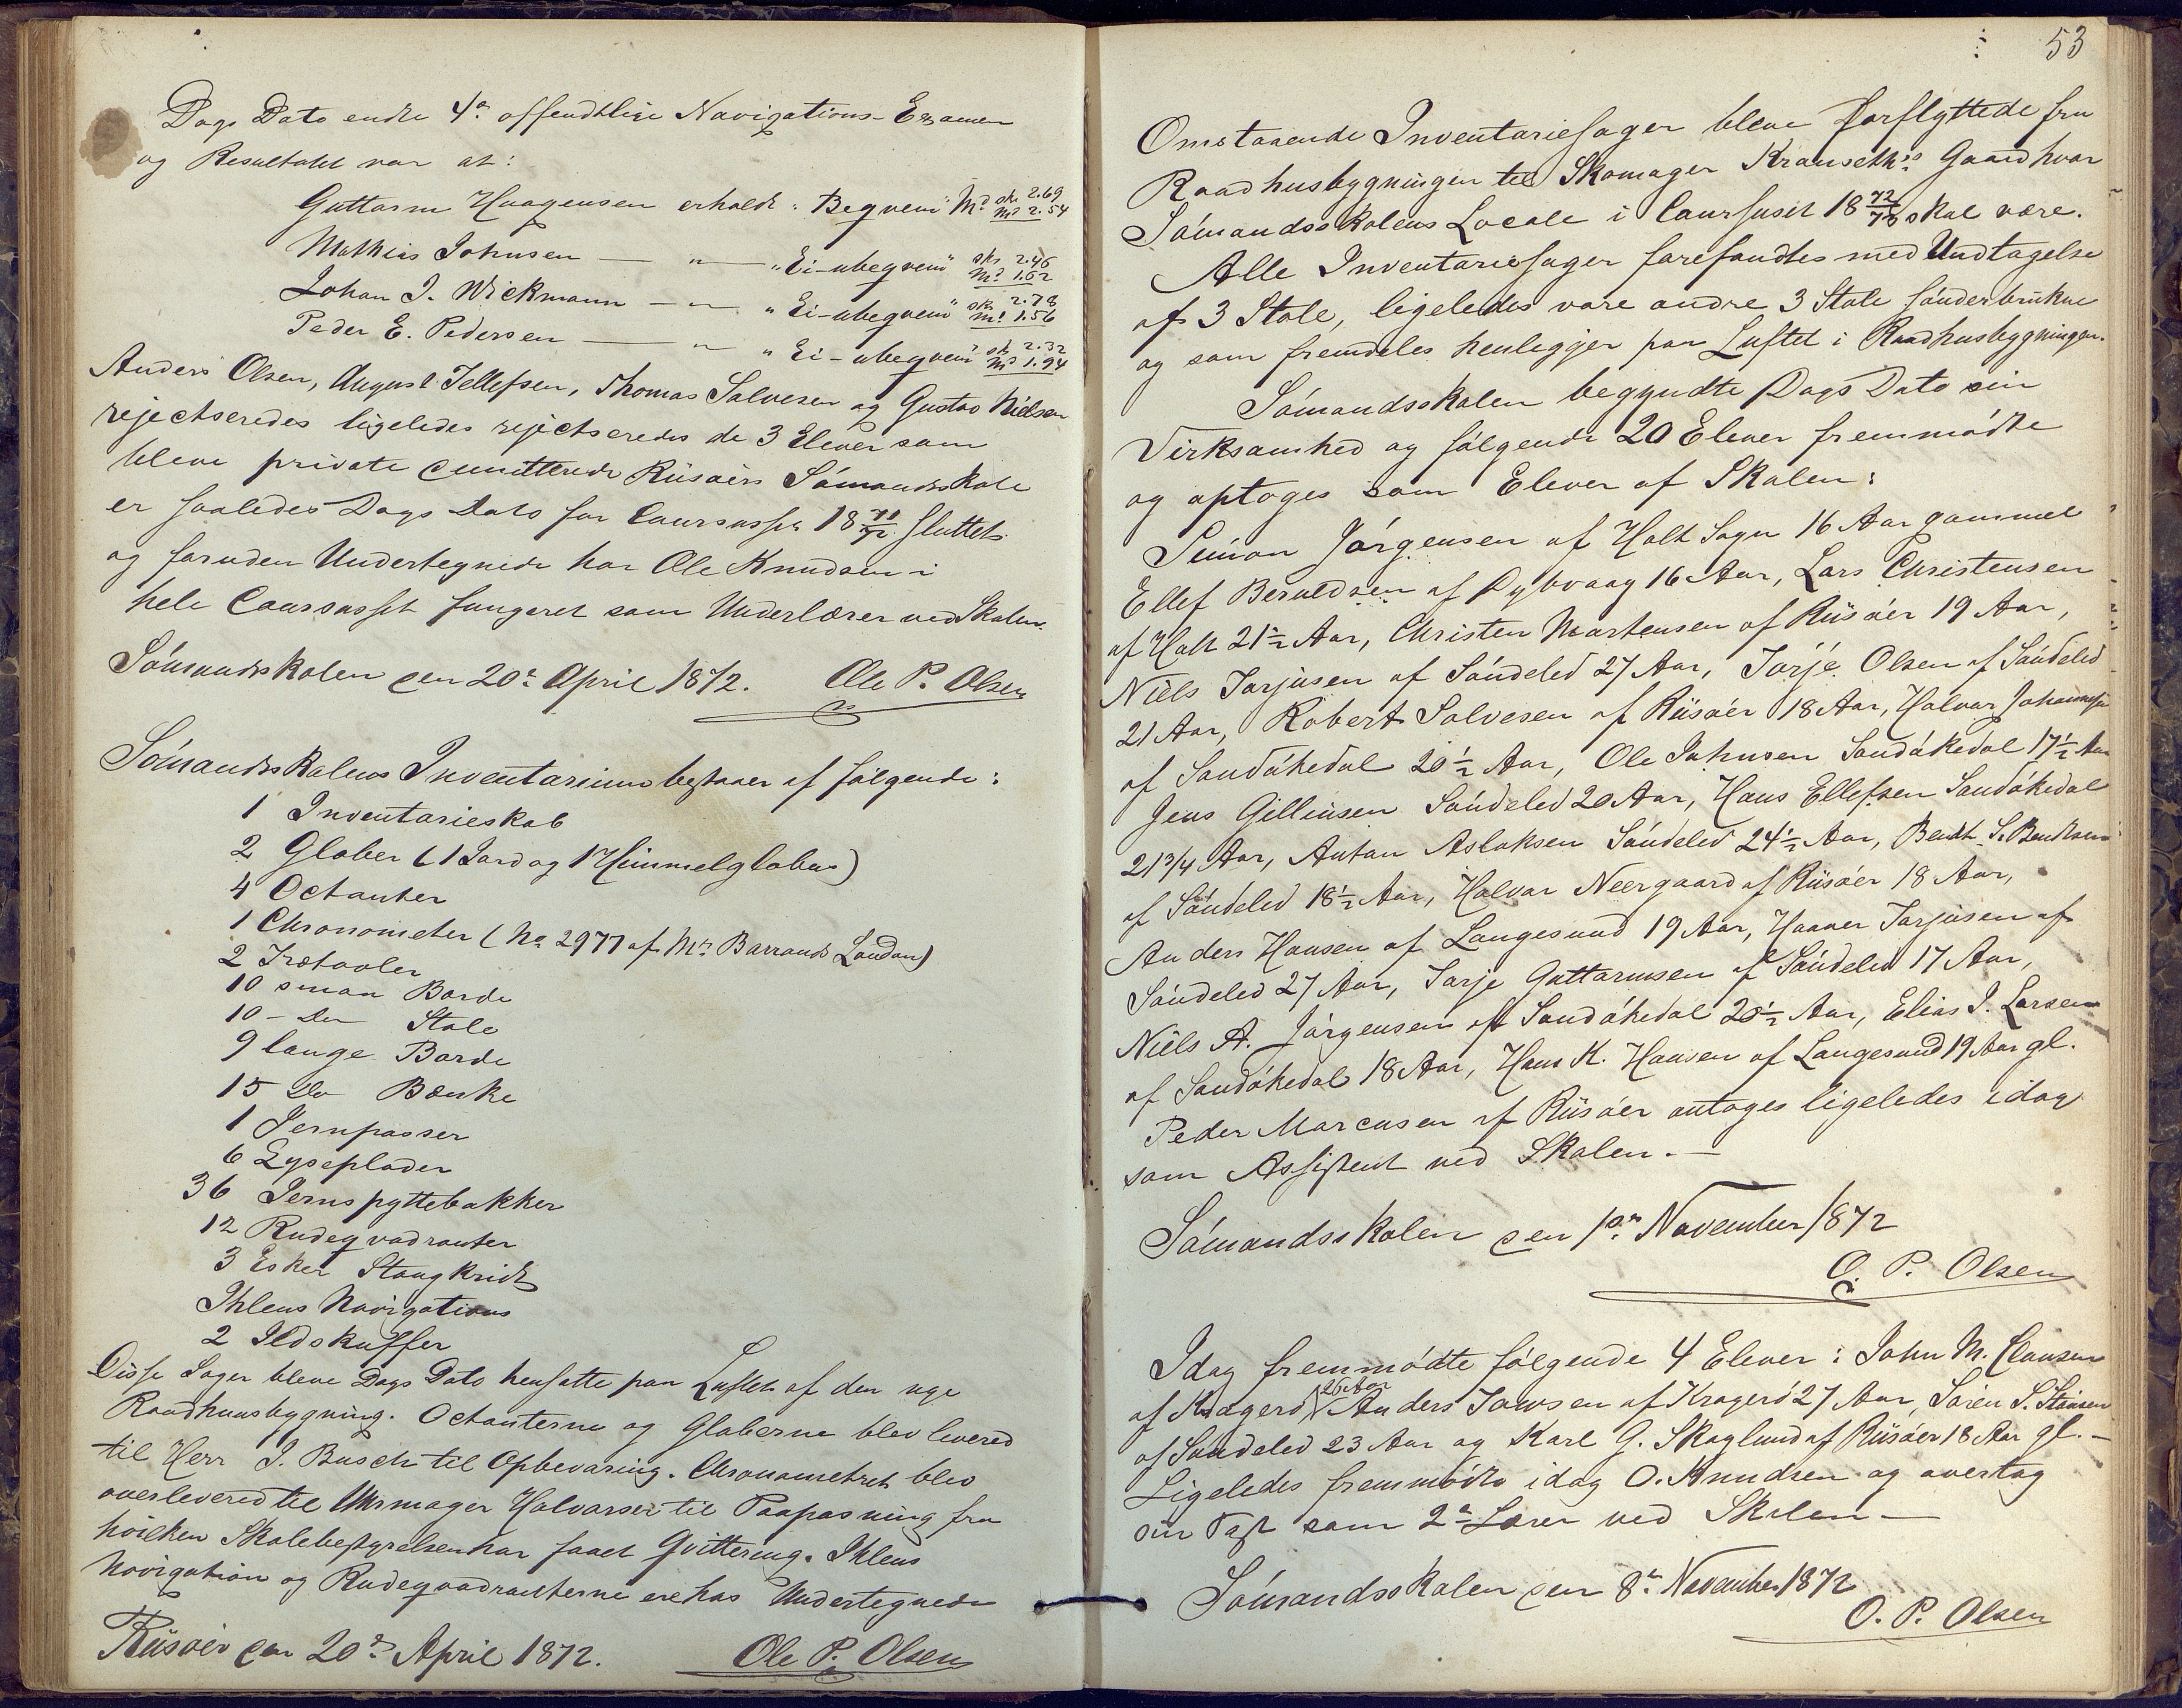 Dags Dato endte 4de offendtlige Navigations-Examen
og Resultatet var at:
Guttorm Haagensen erholdt "Beqvem" Md sk. 2.69 md 2.54
Mathias Johnsen — " — "Ei-ubeqvem" sk. 2.46 md 1.62
Johan J. Wickmann — " — "Ei-ubeqvem" sk. 2.78 md 1.56
Peder E. Pedersen — " — "Ei-ubeqvem" sk 2.32 md 1.94
Anders Olsen, August Tellefsen, Thomas Salvesen og Gustav Nielsen
rejectseredes ligeledes rejectseredes de 3 Elever som
bleve private demitterede Riisøers Sømandsskole
er saaledes Dags Dato for Coursusset 18 71/72 sluttet
og foruden Undertegnede har Ole Knudsen i
hele Coursusset fungeret som Underlærer ved Skolen.
Sømandsskolen den 20de April 1872. Ole P. Olsen
Sømandsskolens Inventarium bestaaer af følgende:
1 Inventarieskab
2 Glober (1 Jord og 1 Himmelglobus)
4 Octanter
1 Chronometer (No 2977 af Mrs Barrauds London)
2 Trætavler
10 smaa Borde
10 - Do Stole
9 lange Borde
15 Do Bænke
1 Jernpasser
6 Lyseplader
36 Jernspyttebakker
12 Rudeqvadranter
3 Esker Stangkridt
Ihlens Navigations
2 Ildskuffer
Disse Sager bleve Dags Dato hensatte paa Luftet af den nye
Raadhuusbygning. Octanterne og Globerne blev levered
til Herr J. Busch til Opbevaring. Chronometret blev
overlevered til Uhrmager Halvorsen til Paapasning fra
hvilken Skolebestyrelsen har faaet Qvittering. Ihlens
Navigation og Rudeqvadranterne ere hos Undertegnede
Riisøer den 20de April 1872. Ole P. Olsen
53
Omstaaende Inventariesager bleve forflyttede fra
Raadhusbygningen til Skomager Gaard hvor
Sømandsskolens Locale i Coursuset 18 72/73 skal være.
Alle Inventariesager forefandtes med Undtagelse
af 3 Stole, ligeledes vare andre 3 Stole sønderbrukne
og som fremdeles henligger paa Luftet i Raadhusbygningen.
Sømandsskolen begyndte Dags Dato sin
Virksamhed og følgende 20 Elever fremmødte
og optoges som Elever af Skolen:
Simon Jørgensen af Holt Sogn 16 Aar gammel
Ellef Beruldsen af Dybvaag 16 Aar, Lars Christensen
af Holt 21½ Aar, Christen Mortensen af Riisøer 19 Aar,
Niels Tarjusen af Søndeled 27 Aar, Tarje Olsen af Søndeled
21 Aar, Robert Salvesen af Riisøer 18 Aar, Halvor Johannesen
af Sandøkedal 20½ Aar, Ole Johnsen Sandøkedal 17½ Aar
Jens Gilliusen Søndeled 20 Aar, Hans Ellefsen Sandøkedal
21 3/4 Aar, Anton Aslaksen Søndeled 24½ Aar, Bendt S. Bendtsen
af Søndeled 18½ Aar, Halvor Neergaard af Riisøer 18 Aar,
Anders Hansen af Langesund 19 Aar, Haaver Tarjusen af
Søndeled 27 Aar, Tarje Guttormsen af Søndeled 17 Aar,
Niels A. Jørgensen af Sandøkedal 20½ Aar, Elias J. Larsen
af Sandøkedal 18 Aar, Hans K. Hansen af Langesund 19 Aar gl.
Peder Marcusen af Riisøer antages ligeledes idag
som Assistent ved Skolen. —
Sømandsskolen den 1ste November 1872
O. P. Olsen
Idag fremmødte følgende 4 Elever: John M. Clausen
af Kragerø 26 Aar Anders Jansen af Kragerø 27 Aar, Søren S.
af Søndeled 23 Aar og Karl G. Skoglund af Riisøer 18 Aar gl. —
Ligeledes fremmødte idag O. Knudsen og overtog
sin Post som 2de Lærer ved Skolen —
Sømandsskolen den 8de November 1872
O. P. Olsen